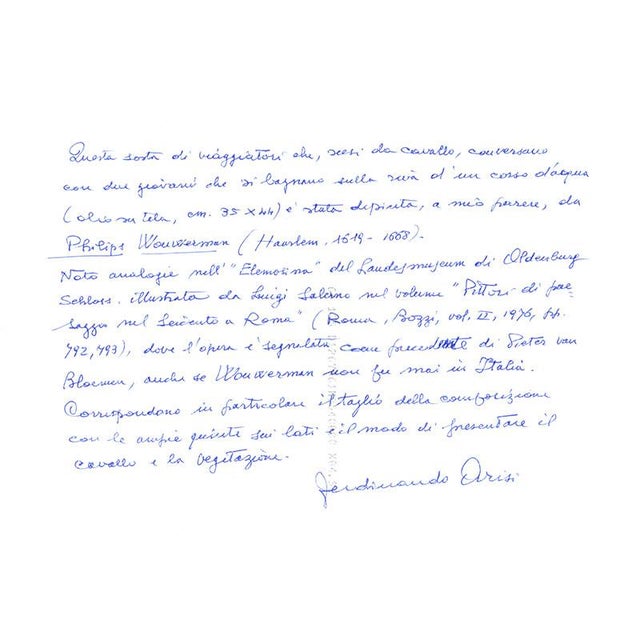 Questa sosta di viaggiatori che, scesi da cavallo, conversano
con due giovani che si bagnano sulla riva d'un corso d'acqua
(olio su tela, cm. 35 x 44) è stata dipinta, a mio parere, da
Philips Wouwerman (Haarlem, 1619-1668).
Noto analogie nell'"Elemosina" del Landesmuseum di Oldenburg
Schloss. illustrata da Luigi Salerno nel volume "Pittori di pae-
saggio nel Seicento a Roma" (Roma, Bozzi, vol. II, 1976, pp.
792, 793), dove l'opera è segnalata come precedente di Pieter van
Bloemen, anche se Wouwerman non fu mai in Italia.
Corrispondono in particolare il taglio della composizione
con le ampie quinte sui lati e il modo di presentare il
cavallo e la vegetazione.
Ferdinando Arisi